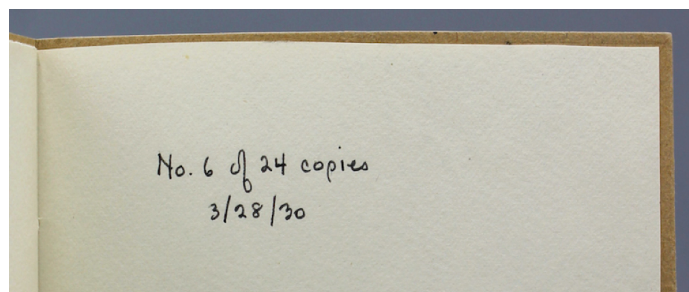 No. 6 of 24 copies
3/28/30